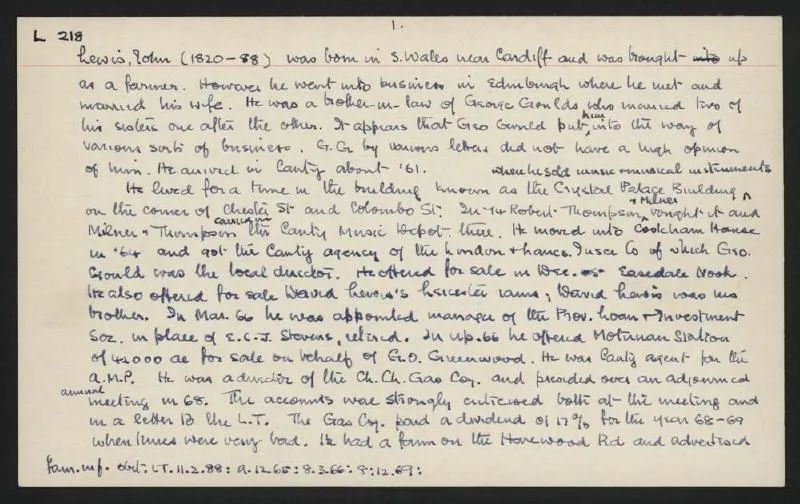 1.
L 218
Lewis, John (1820-88) was born in S. Wales near Cardiff and was brought into up
as a farmer. However he went into business in Edinburgh where he met and
married his wife. He was a brother-in-law of George Goulds who married two of
his sisters one after the other. It appears that Geo Gould put him into the way of
various sorts of business. G.G. by various letters did not have a high opinion
of him. He arrived in Canty about '61. when he sold music & musical instruments
He lived for a time in the building known as the Crystal Palace Building
on the corner of Chester St and Colombo St. In '74 Robert Thompson & Milner bought it and
Milner & Thompson carried on the Canty Music Depot there. He moved into Cookham House
in '64 and got the Canty agency of the London & Lancs. Insce Co of which Geo.
Gould was the local director. He offered for sale in Dec. 65 Easedale Nook.
He also offered for sale David Lewis's Leicester rams; David Lewis was his
brother. In Mar. 66 he was appointed manager of the Prov. Loan & Investment
Soc. in place of E.C.J. Stevens, retired. In Ap. 66 he offered Motunau Station
of 42000 ac for sale on behalf of G.O. Greenwood. He was Canty agent for the
A.M.P. He was a director of the Ch.Ch. Gas Coy. and presided over an adjourned
annual meeting in 68. The accounts were strongly criticised both at the meeting and
in a letter to the L.T. The Gas Coy. paid a dividend of 12% for the year 68-69
when times were very bad. He had a farm on the Harewood Rd and advertised
Fam. inf. Obit: LT. 11.2.88: a.12.65: 8.3.66: 9:12.69: